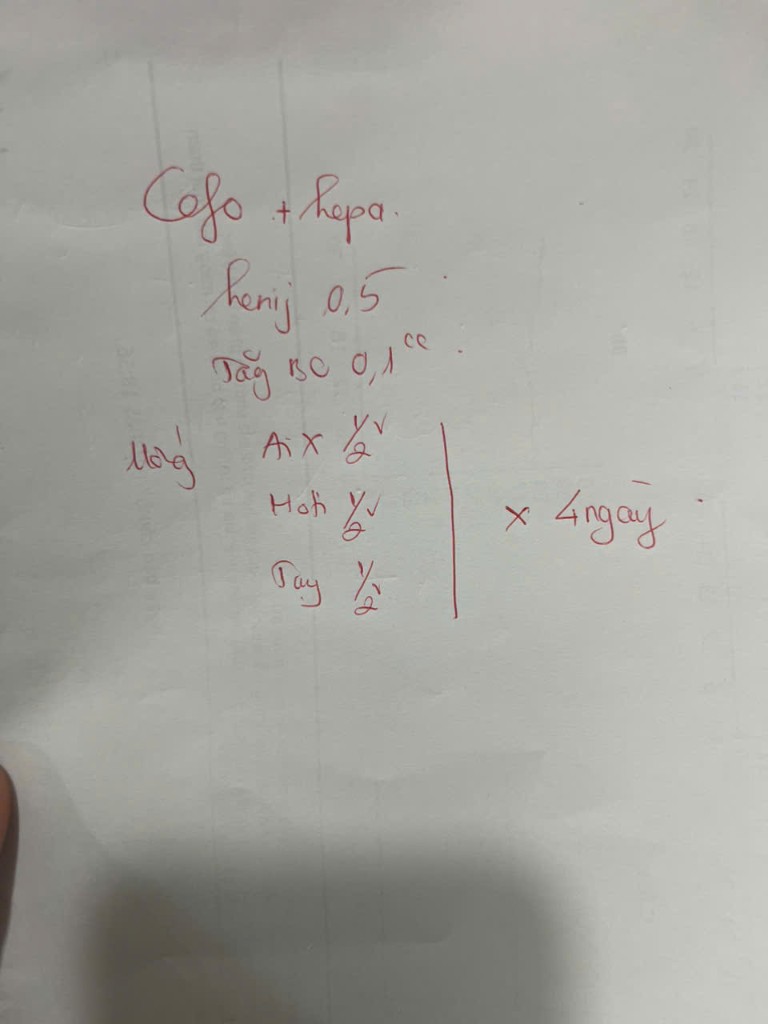 Cefo + hepa.
henij 0,5
Tăg BC 0,1cc
Uống Ai X 1/2v
Hoti 1/2v
Tay 1/2v
x 4 ngày